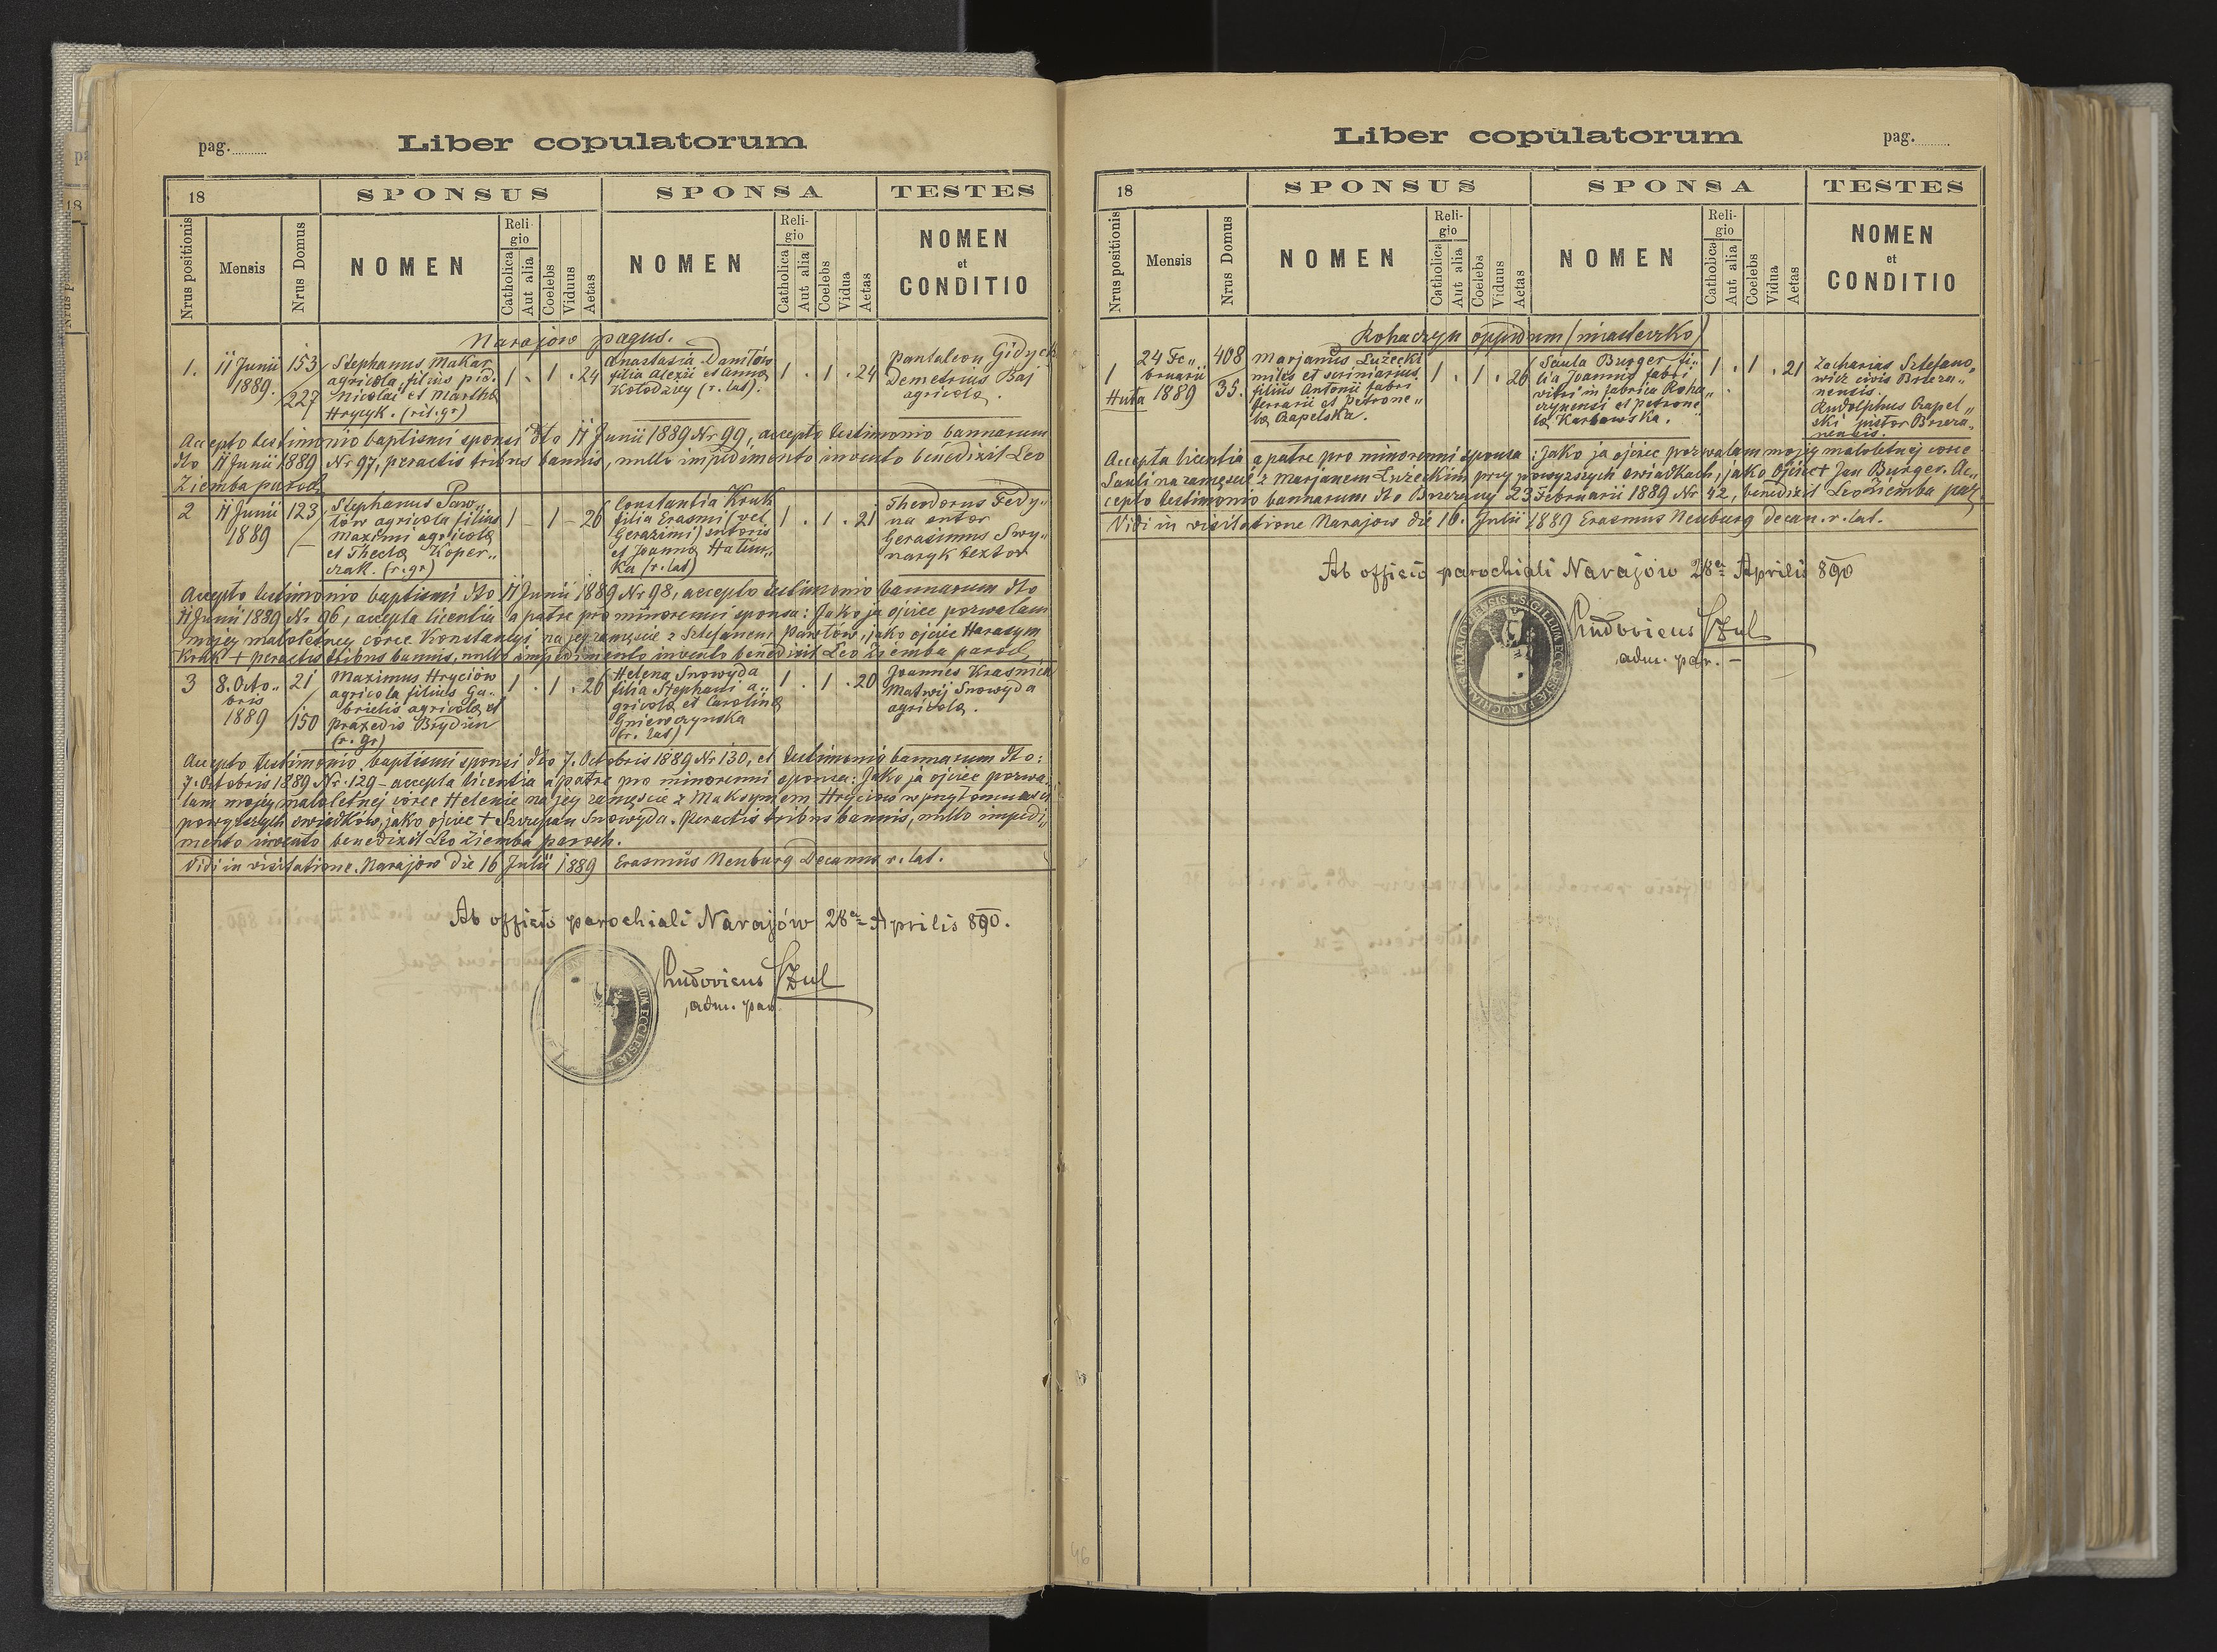 pag.
Liber copulatorum
18
SPONSUS
SPONSA
TESTES
Nrus positionis
Mensis
Nrus Domus
NOMEN
Religio
Catholica
Aut alia
Coelebs
Viduus
Aetas
NOMEN
Religio
Catholica
Aut alia
Coelebs
Vidua
Aetas
NOMEN
et
CONDITIO
Narajow pagus.
1.
11 Junii
1889.
153
227
Stephanus Makar
agricola, filius pid.
Nicolai et Martha
Hrycyk. (rit. gr)
1 . 1 . 24
Anastasia Daniłów
filia Alexii et Anna
Kołodziey (r. lat).
1 . 1 . 24
Pantaleon Gidyck
Demetrius Baj
agricola.
Accepto testimonio baptismi sponsi dto 11 Junii 1889 Nr 99, accepto testimonio bannarum
dto 11 Junii 1889 Nr 97, peractis tribus bannis, nullo impedimento invento benedixit Leo
Ziemba paroch
2
11 Junii
1889
123
Stephanus Paw„
łów agricola filius
Maximi agricola
et Thecla Koper„
czak. (r. gr)
1 – 1 – 26
Constantia Kruk
filia Erasmi (vel
Gerazimi) sutoris
et Joanna Hatłuw„
ka (r. lat)
1 . 1 . 21
Theodorus Fedy„
na sutor
Gerasimus Swy„
naryk textor
Accepto testimonio baptismi dto 11 Junii 1889 Nr 98, accepto testimonio bannarum dto
11 Junii 1889 Nr 96, accepta licentia a patre pro minorenni sponsa: Jako ja ojciec pozwalam
mojey małoletney córce Konstancyi na jej zamęscie z Sztefanem Pawłów, jako ojciec Harasym
Kruk + peractis tribus bannis, nullo impedimento invento benedixit Leo Ziemba paroch
3
8. Octo„
bris
1889
21
150
Maximus Hryciów
agricola filius Ga„
brielis agricola et
Praxedis Brydun
(r. gr)
1 . 1 . 26
Helena Snowyda
filia Stephani a„
gricola et Carolina
Gniewczynska
(r. lat)
1 . 1 . 20
Joannes Krasnica
Matwij Snowyda
agricola.
Accepto testimonio baptismi sponsi dto 7. Octobris 1889 Nr 130, et testimonio bannarum dto:
7. Octobris 1889 Nr. 129 – accepta licentia a patre pro minorenni sponsa: Jako ja ojciec pozwa„
lam mojey małoletnej córce Helenie na jey zamęscie z Maksymem Hryciow w przytomnosci
powyższych swiadków, jako ojciec + Szczepan Snowyda. Peractis tribus bannis, nullo impedi„
mento invento benedixit Leo Ziemba paroch.
Vidi in visitatione. Narajow die 16 Julii 1889 Erasmus Neuburg Decanus r. lat.
Ab officio parochiali Narajów 28a Aprilis 890.
Ludovicus Szul
adm. par
Liber copulatorum
pag.
18
SPONSUS
SPONSA
TESTES
Nrus positionis
Mensis
Nrus Domus
NOMEN
Religio
Catholica
Aut alia
Coelebs
Viduus
Aetas
NOMEN
Religio
Catholica
Aut alia
Coelebs
Vidua
Aetas
NOMEN
et
CONDITIO
Rohaczyn oppidum (miasteczko)
1
Huta
24 Fe„
bruarii
1889
408
35.
Marjanus Łużecki
miles et scriniarius
filius Antonii fabri
ferrarii et Petrone„
la Czapelska.
1 . 1 . 26
Saula Burger fi„
lia Joannis fabri
vitri in fabrica Roha„
czynensi et Petrone„
la Karbowska.
1 . 1 . 21
Zacharias Sztefano„
wicz civis Brzeza„
nensis.
Rudolphus Czapel„
ski pistor Brzeza„
nensis.
Accepta licentia a patre pro minorenni sponsa: Jako ja ojciec pozwalam mojej małoletnej córce
Sauli na zamęscie z Marjanem Łużeckim przy powyższych swiadkach, jako Ojciec + Jan Burger. Ac„
cepto testimonio bannarum dto Brzezany 23 Februarii 1889 Nr 42, benedixit Leo Ziemba par,
Vidi in visitatione Narajow die 16. Julii 1889 Erasmus Neuburg decan. r. lat.
Ab officio parochiali Narajów 28a Aprilis 890
SIGILLUM ECCLESIÆ PAROCHIALIS NARAJOVIENSIS
Ludovicus Szul
adm. par. –
46